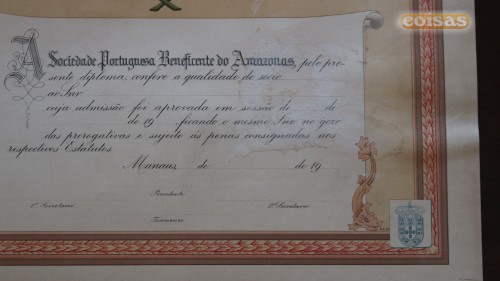 coisas
A Sociedade Portuguesa Beneficente do Amazonas, pelo pre-
sente diploma, confere a qualidade de socio
ao Snr.
cuja admissão foi aprovada em sessão de de
de 19 , ficando o mesmo Snr. no gozo
das prerogativas e sujeito ás penas consignadas nos
respectivos Estatutos.
Manaus, de de 19
Presidente
1º Secretario 2º Secretario
Tesoureiro